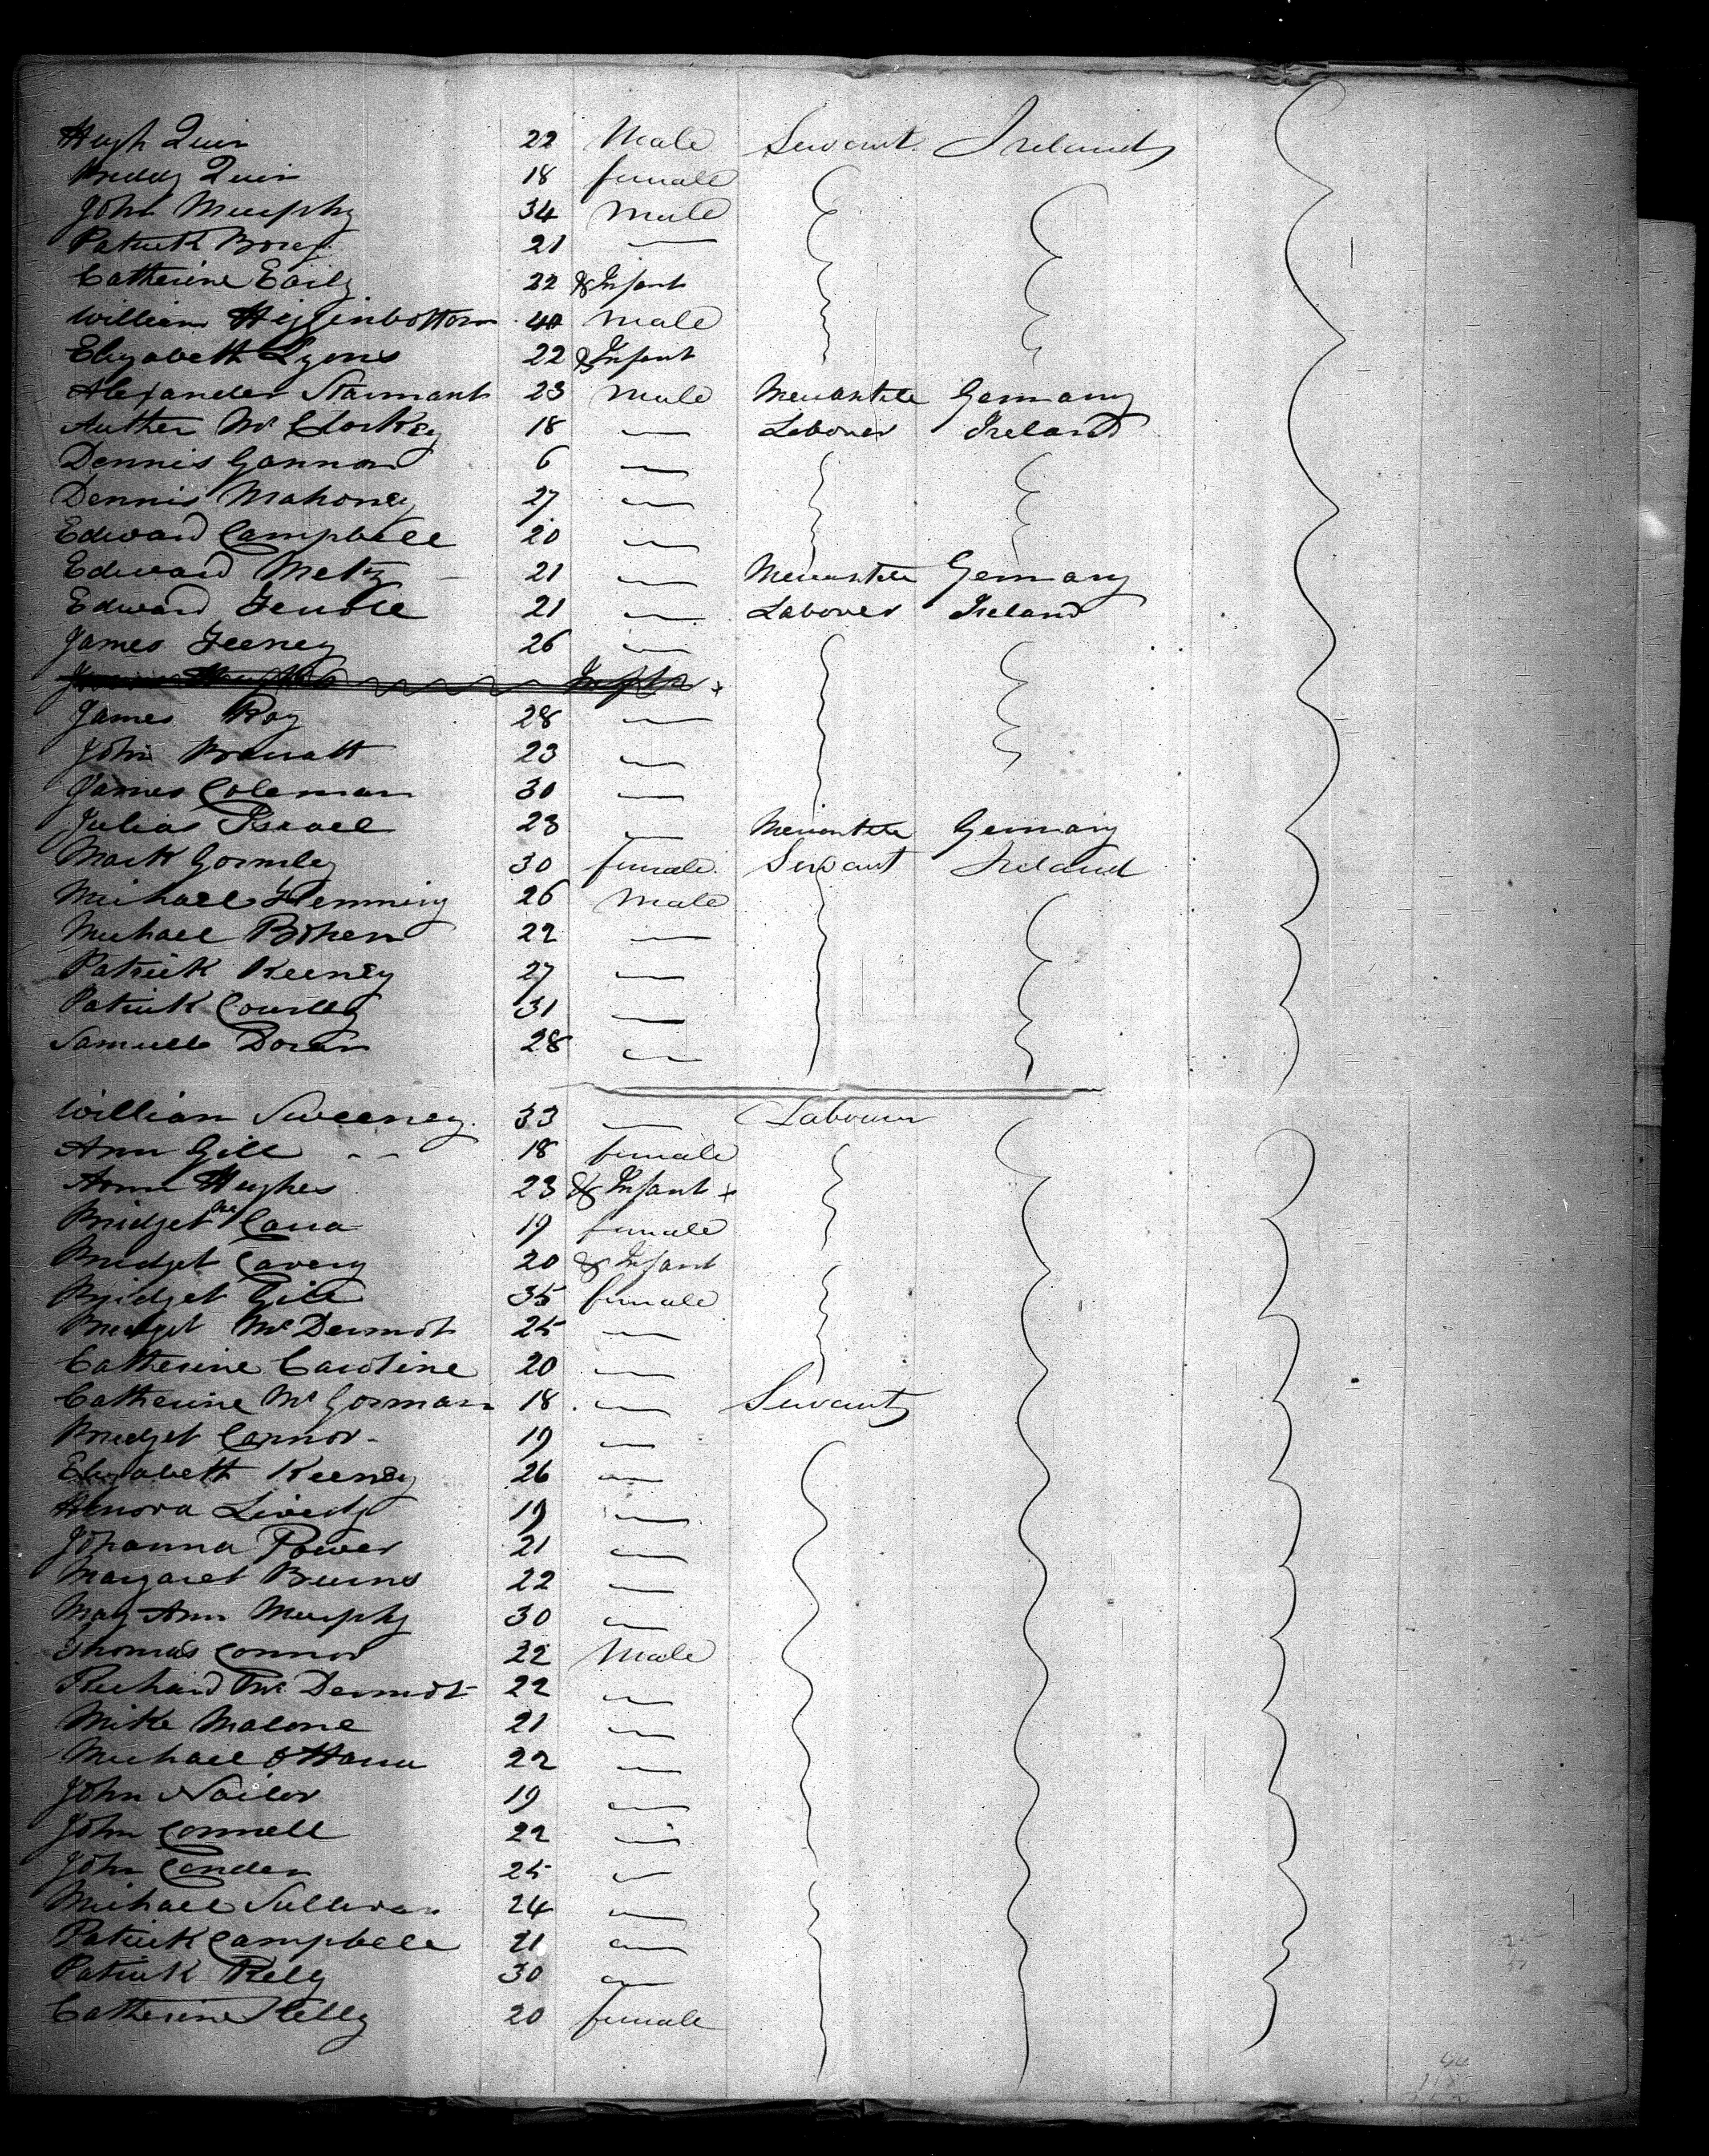 Hugh Quin 22 Male Servant Ireland
Briddy Quin 18 female
John Murphy 34 Male
Patrick 21 —
Catherine Early 22 & Infant
William Higginbottom male
Elizabeth Lyons 22 & Infant
Alexander 23 male Mercantile Germany
Auther Mc Clorkey 18 — Laborer Ireland
Dennis Gannon 6 —
Dennis Mahoney 27 —
Edward Campbell 20 —
Edward Metz 21 — Mercantile Germany
Edward 21 — Laborer Ireland
James Feeney 26 —
James Roy 28 —
John 23 —
James Coleman 30 —
Julias Israel 23 — Mercantile Germany
Mark Gormley 30 female Servant Ireland
Michael Flemming 26 Male
Michael 22 —
Patrick Keeney 27 —
Patrick 31 —
Samuell Doran 28 —
William Sweeney 33 — Labourer
Ann Gill - - 18 female
Anne Hughes 23 & Infant +
Bridget Mc Cana 19 female
Bridget Cavery 20 & Infant
Bridget Gill 35 female
Bridget Mc Dermot 25 —
Catherine Caroline 20 —
Catherine Mc Gorman 18 — Servant
Bridget Connor 19 —
Elizabeth Keeney 26 —
Henora 19 —
Johanna Power 21 —
Margaret Burns 22 —
May Ann Murphy 30 —
Thomas Connor 22 Male
Richard Mc Dermot 22 —
Mike Malone 21 —
Michael O Hara 22 —
John Nailor 19 —
John Connell 22 —
John Conden 25 —
Michael Sullivan 24 —
Patrick Campbell 21 —
Patrick Relly 30 —
Catherine Kelly 20 female